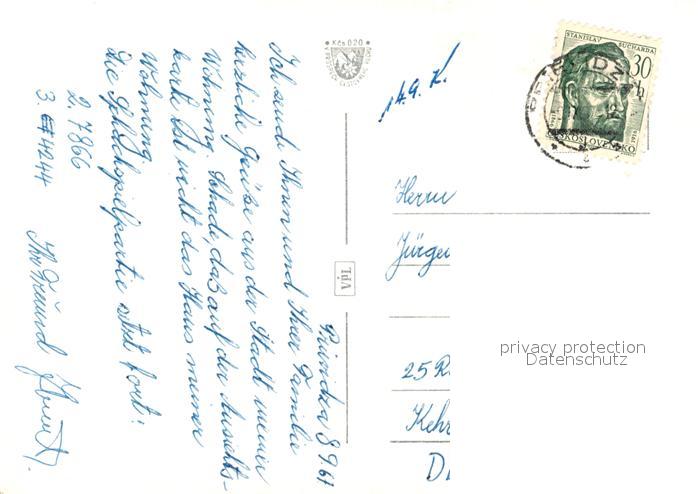 Prievidza 8 9.67
Ich sende Ihnen und Ihrer Familie
herzliche Grüße aus der Stadt meiner
Wohnung. Schade, daß auf der Ansichts-
karte ist nicht das Haus meiner
Wohnung.
Die Schachspielpartie setzt fort:
2. 7866
3. 4244
Ihr Freund
Kčs 0,20
VpL
14.9. K.
STANISLAV SUCHARDA
30 h
ČESKOSLOVENSKO
Herrn
Jürgen
25 
Kehr
privacy protection
Datenschutz